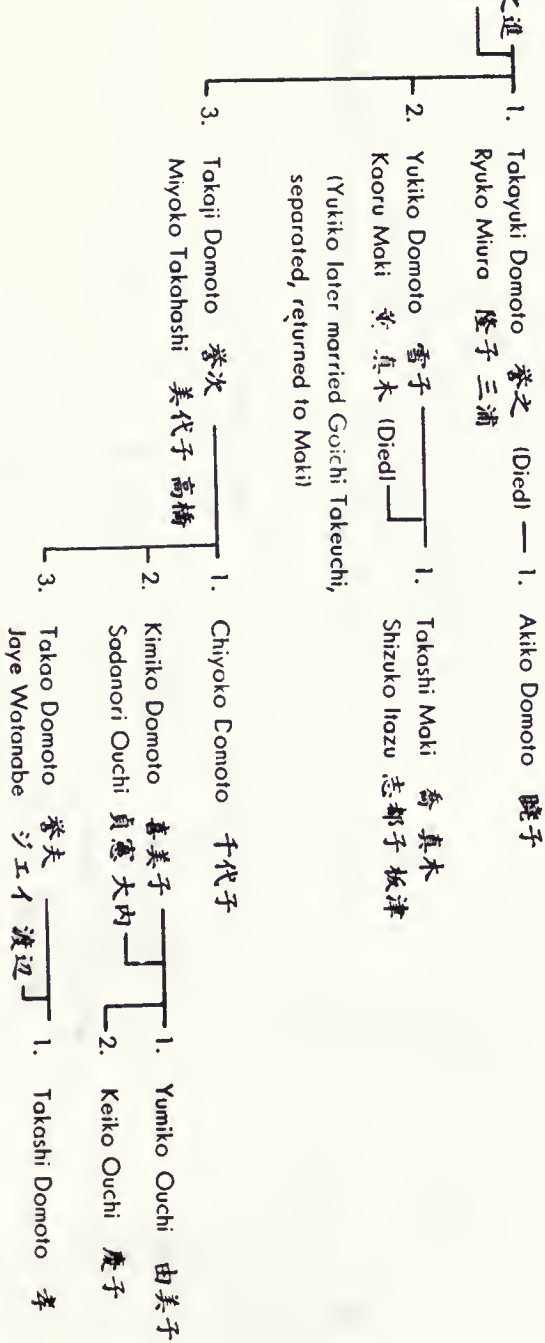 之進
1. Takayuki Domoto 誉之 (Died)
Ryuko Miura 隆子 三浦
1. Akiko Domoto 暁子
2. Yukiko Domoto 雪子
Kaoru Maki 真木 (Died)
(Yukiko later married Goichi Takeuchi,
separated, returned to Maki)
1. Takashi Maki 喬 真木
Shizuko Itazu 志都子 板津
3. Takaji Domoto 誉次
Miyoko Takahashi 美代子 高橋
1. Chiyoko Domoto 千代子
2. Kimiko Domoto 喜美子
Sadanori Ouchi 貞憲 大内
1. Yumiko Ouchi 由美子
2. Keiko Ouchi 慶子
3. Takao Domoto 誉夫
Jaye Watanabe ジェイ 渡辺
1. Takashi Domoto 孝